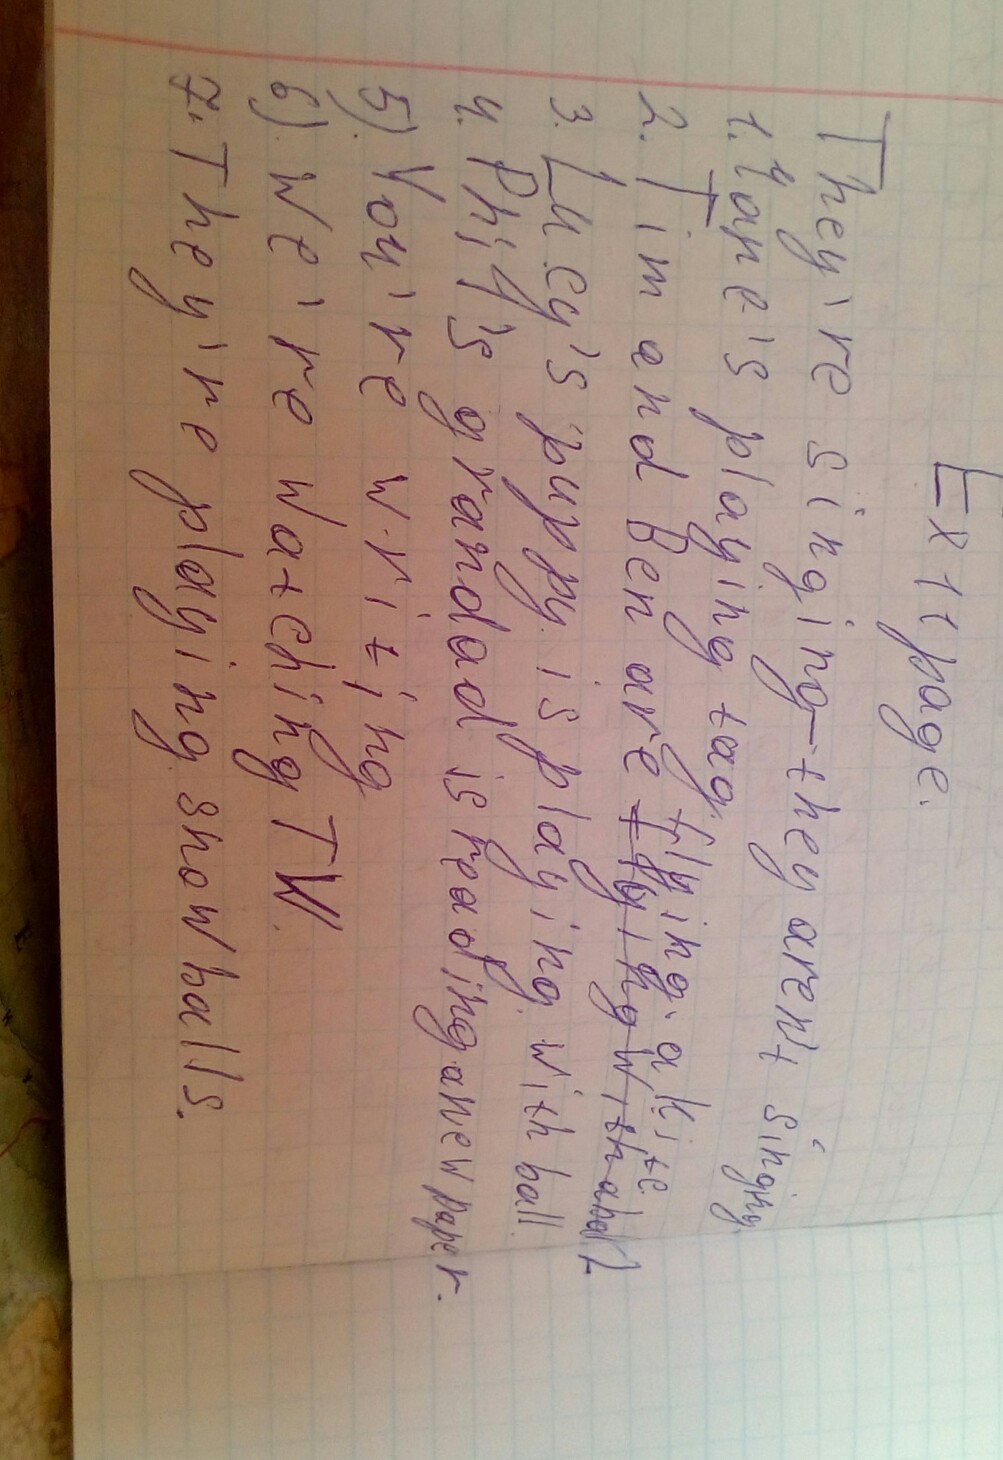 Ex 1 t page.
They're singing - they aren't singing.
1. Jane's playing tag.
flying a kite.
2. Tim and Ben are flying with a ball
3. Lucy's puppy is playing with ball
4. Phil's grandad is reading a new paper.
5). You're writing
6). We're watching TW.
7. They're playing snowballs.